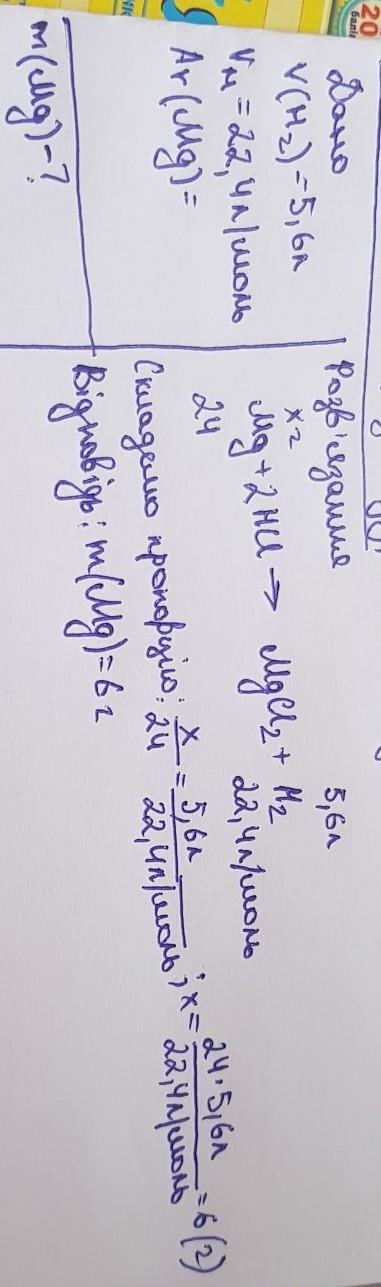 20
балів
Дано
V(H₂)=5,6л
Vм=22,4л/моль
Ar(Mg)=
m(Mg)-?
Розв'язання
xг 5,6л
Mg+2HCl→ MgCl₂+ H₂
24 22,4л/моль
Складемо пропорцію: x/24=5,6л/22,4л/моль; x=24·5,6л/22,4л/моль=6(г)
Відповідь: m(Mg)=6г